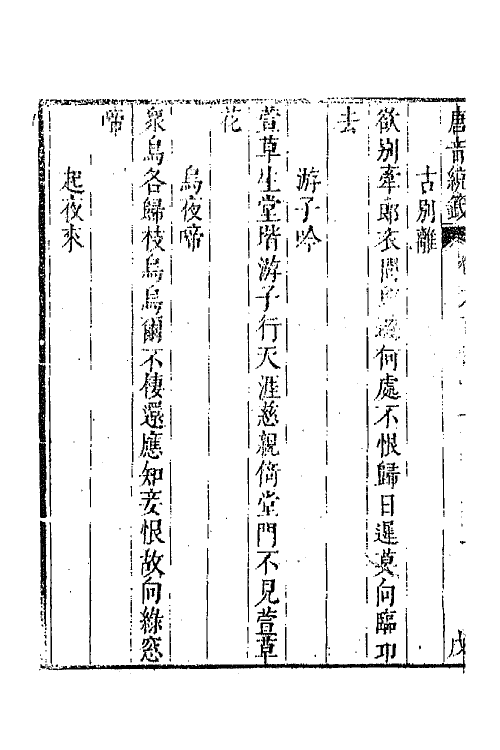 唐音統籤
古別離
欲別牽郎衣問郎遊何處不恨歸日遲莫向臨卭
去
游子吟
萱草生堂堦游子行天涯慈親倚堂門不見萱草
花
烏夜啼
衆鳥各歸枝烏烏爾不棲還應知妾恨故向綠窓
啼
起夜來